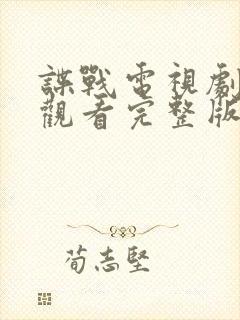 諜戰電視劇
觀看完整版
荀志堅